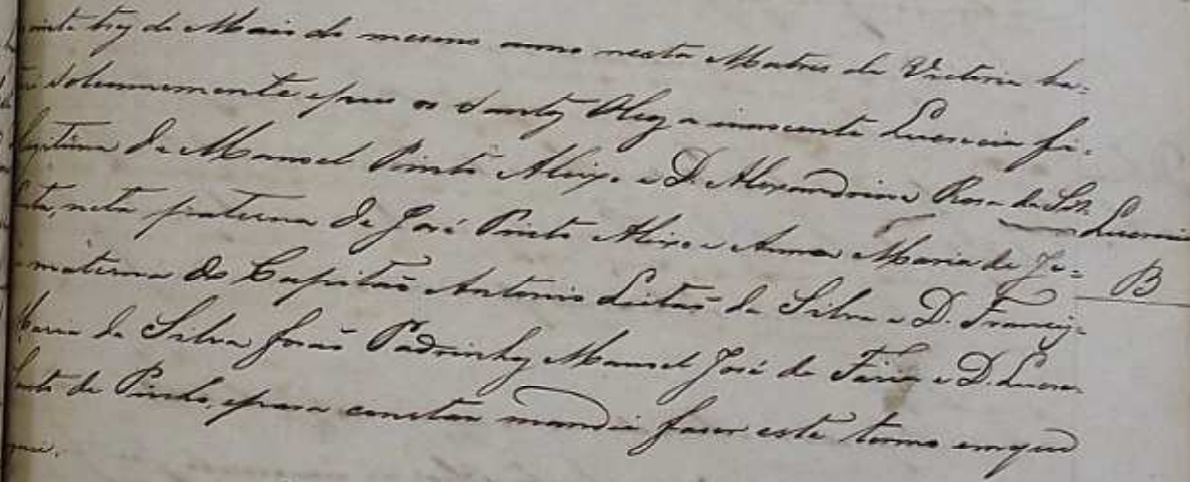 vinte trez de Maio do mesmo anno nesta Matris da Victoria ba-
solemnemente epus os Santoz Oleoz a innocente Lucrecia fi-
legitima de Manoel Pinto Aleixo e D. Alexandrina Rosa da Silv.ª
neta paterna de José Pinto Aleixo e Anna Maria de Je-
materna do Capitaõ Antonio Leitaõ da Silva e D. Francis-
Maria da Silva foraõ Padrinhoz Manoel José de Faria e D. Lucre-
de Pinho, epara constar mandei faser este termo emque
Lucrecia
B